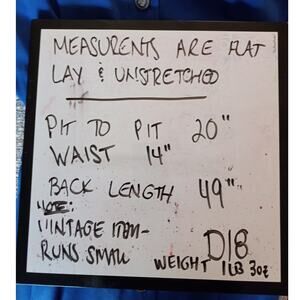 MEASURENTS ARE FLAT
LAY & UNSTRETCHED
PIT TO PIT 20"
WAIST 14"
BACK LENGTH 49"
NOTE:
VINTAGE ITEM-
RUNS SMALL
D18
WEIGHT 1LB 3oz